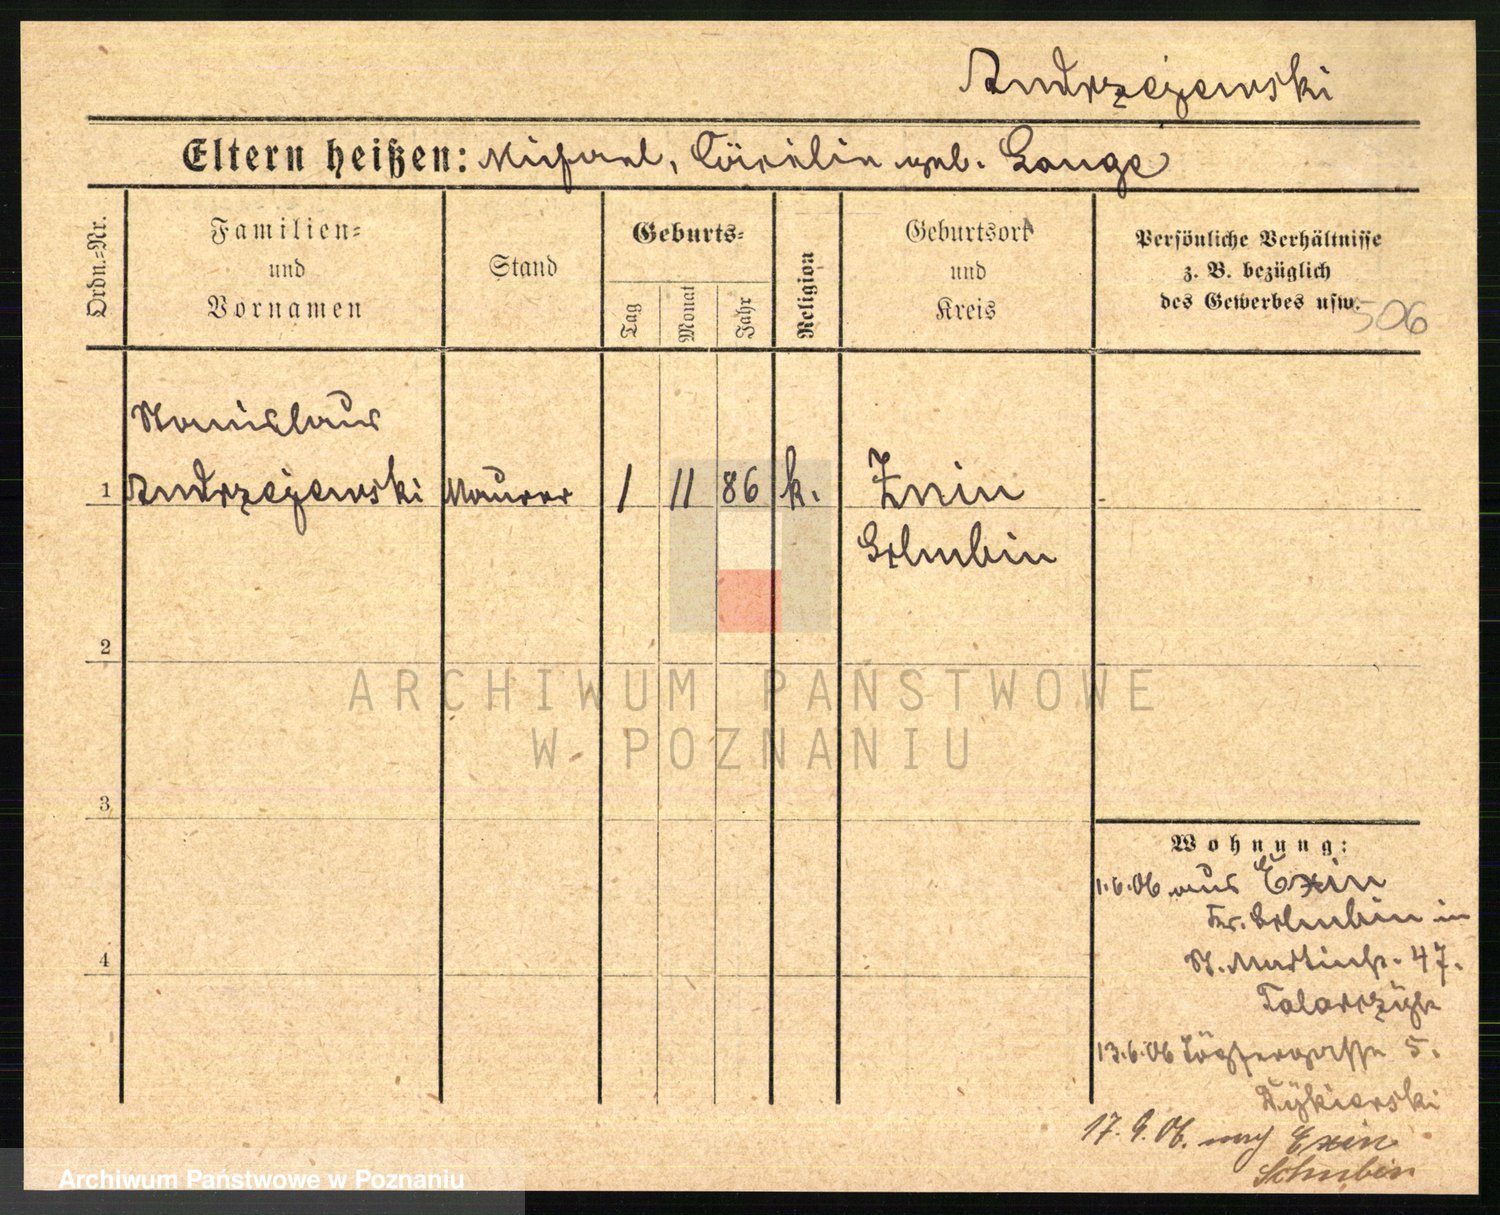 Andrzejewski
Eltern heißen: Michael, Cäcilie geb. Lange
Ordn.-Nr.
Familien-
und
Vornamen
Stand
Geburts-
Tag
Monat
Jahr
Religion
Geburtsort
und
Kreis
Persönliche Verhältnisse
z. B. bezüglich
des Gewerbes usw.
506
Stanislaus
1 Andrzejewski Maurer 1 11 86 k. Znin
Schubin
2
3
4
ARCHIWUM PAŃSTWOWE
W POZNANIU
Wohnung:
1.6.06 aus Exin
Kr. Schubin in
St. Martinstr. 47.
13.6.06 5.
17.9.06. nach Exin
Schubin
Archiwum Państwowe w Poznaniu